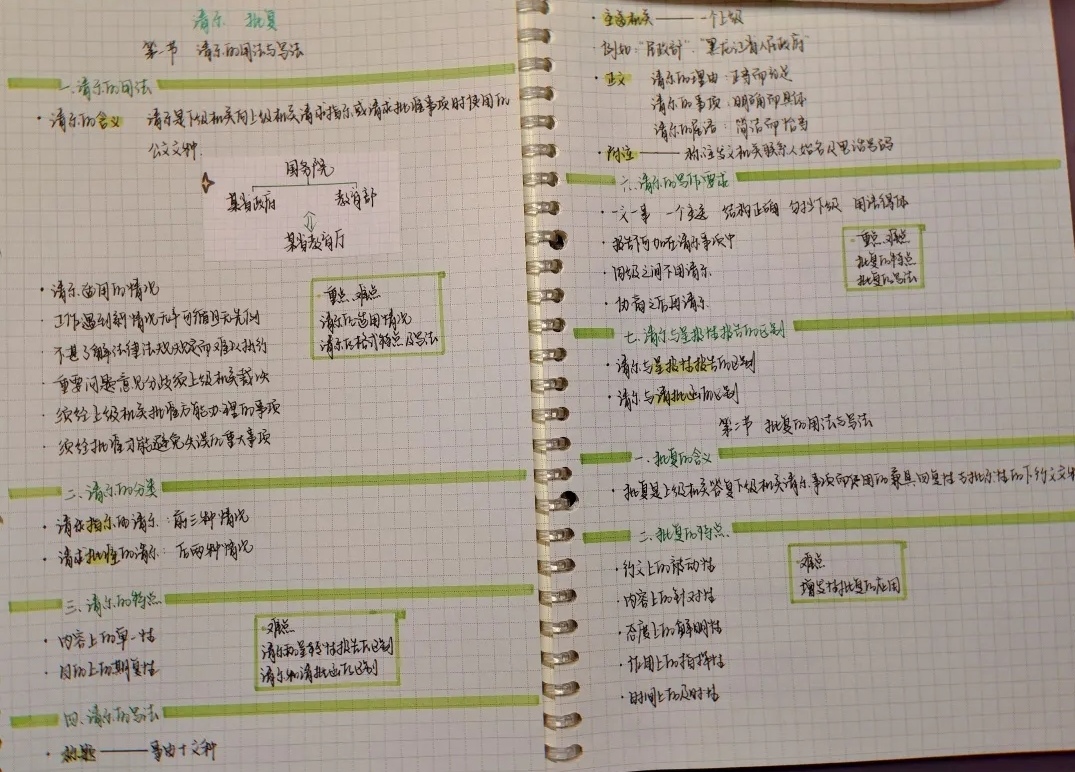 请示 批复
第一节 请示的用法与写法
一.请示的用法
·请示的含义 请示是下级机关向上级机关请求指示或请求批准事项时使用的
公文文种.
国务院
某省政府 教育部
某省教育厅
·请示适用的情况
·工作遇到新情况无章可循且无先例
·不甚了解法律法规规定而难以执行
·重要问题意见分歧须上级机关裁决
·须经上级机关批准方能办理的事项
·须经批准才能避免失误的重大事项
·重点、难点
请示的适用情况
请示的格式特点及写法
二.请示的分类
·请求指示的请示:前三种情况
·请求批准的请示:后两种情况
三.请示的特点
·内容上的单一性
·目的上的期复性
·难点
请示和呈报性报告的区别
请示和请批函的区别
四.请示的写法
·标题——事由+文种
·主送机关——一个上级
·例如:“民政部”、“黑龙江省人民政府”
·正文 请示的理由:正当而充足
请示的事项:明确而具体
请示的尾语:简洁而恰当
·附注——标注发文机关联系人姓名及电话号码
六.请示的写作要求
·一文一事 一个主送 结构正确 勿抄下级 用语得体
·报告不可加在请示事项中
·同级之间不用请示
·协商之后再请示
·重点、难点
批复的特点
批复的写法
七.请示与呈报性报告的区别
·请示与呈报性报告的区别
·请示与请批函的区别
第二节 批复的用法与写法
一.批复的含义
·批复是上级机关答复下级机关请示事项而使用的兼具回复性与指示性的下行文文种
二.批复的特点.
·行文上的被动性
·内容上的针对性
·态度上的鲜明性
·作用上的指挥性
·时间上的及时性
·难点
增发性批复的应用